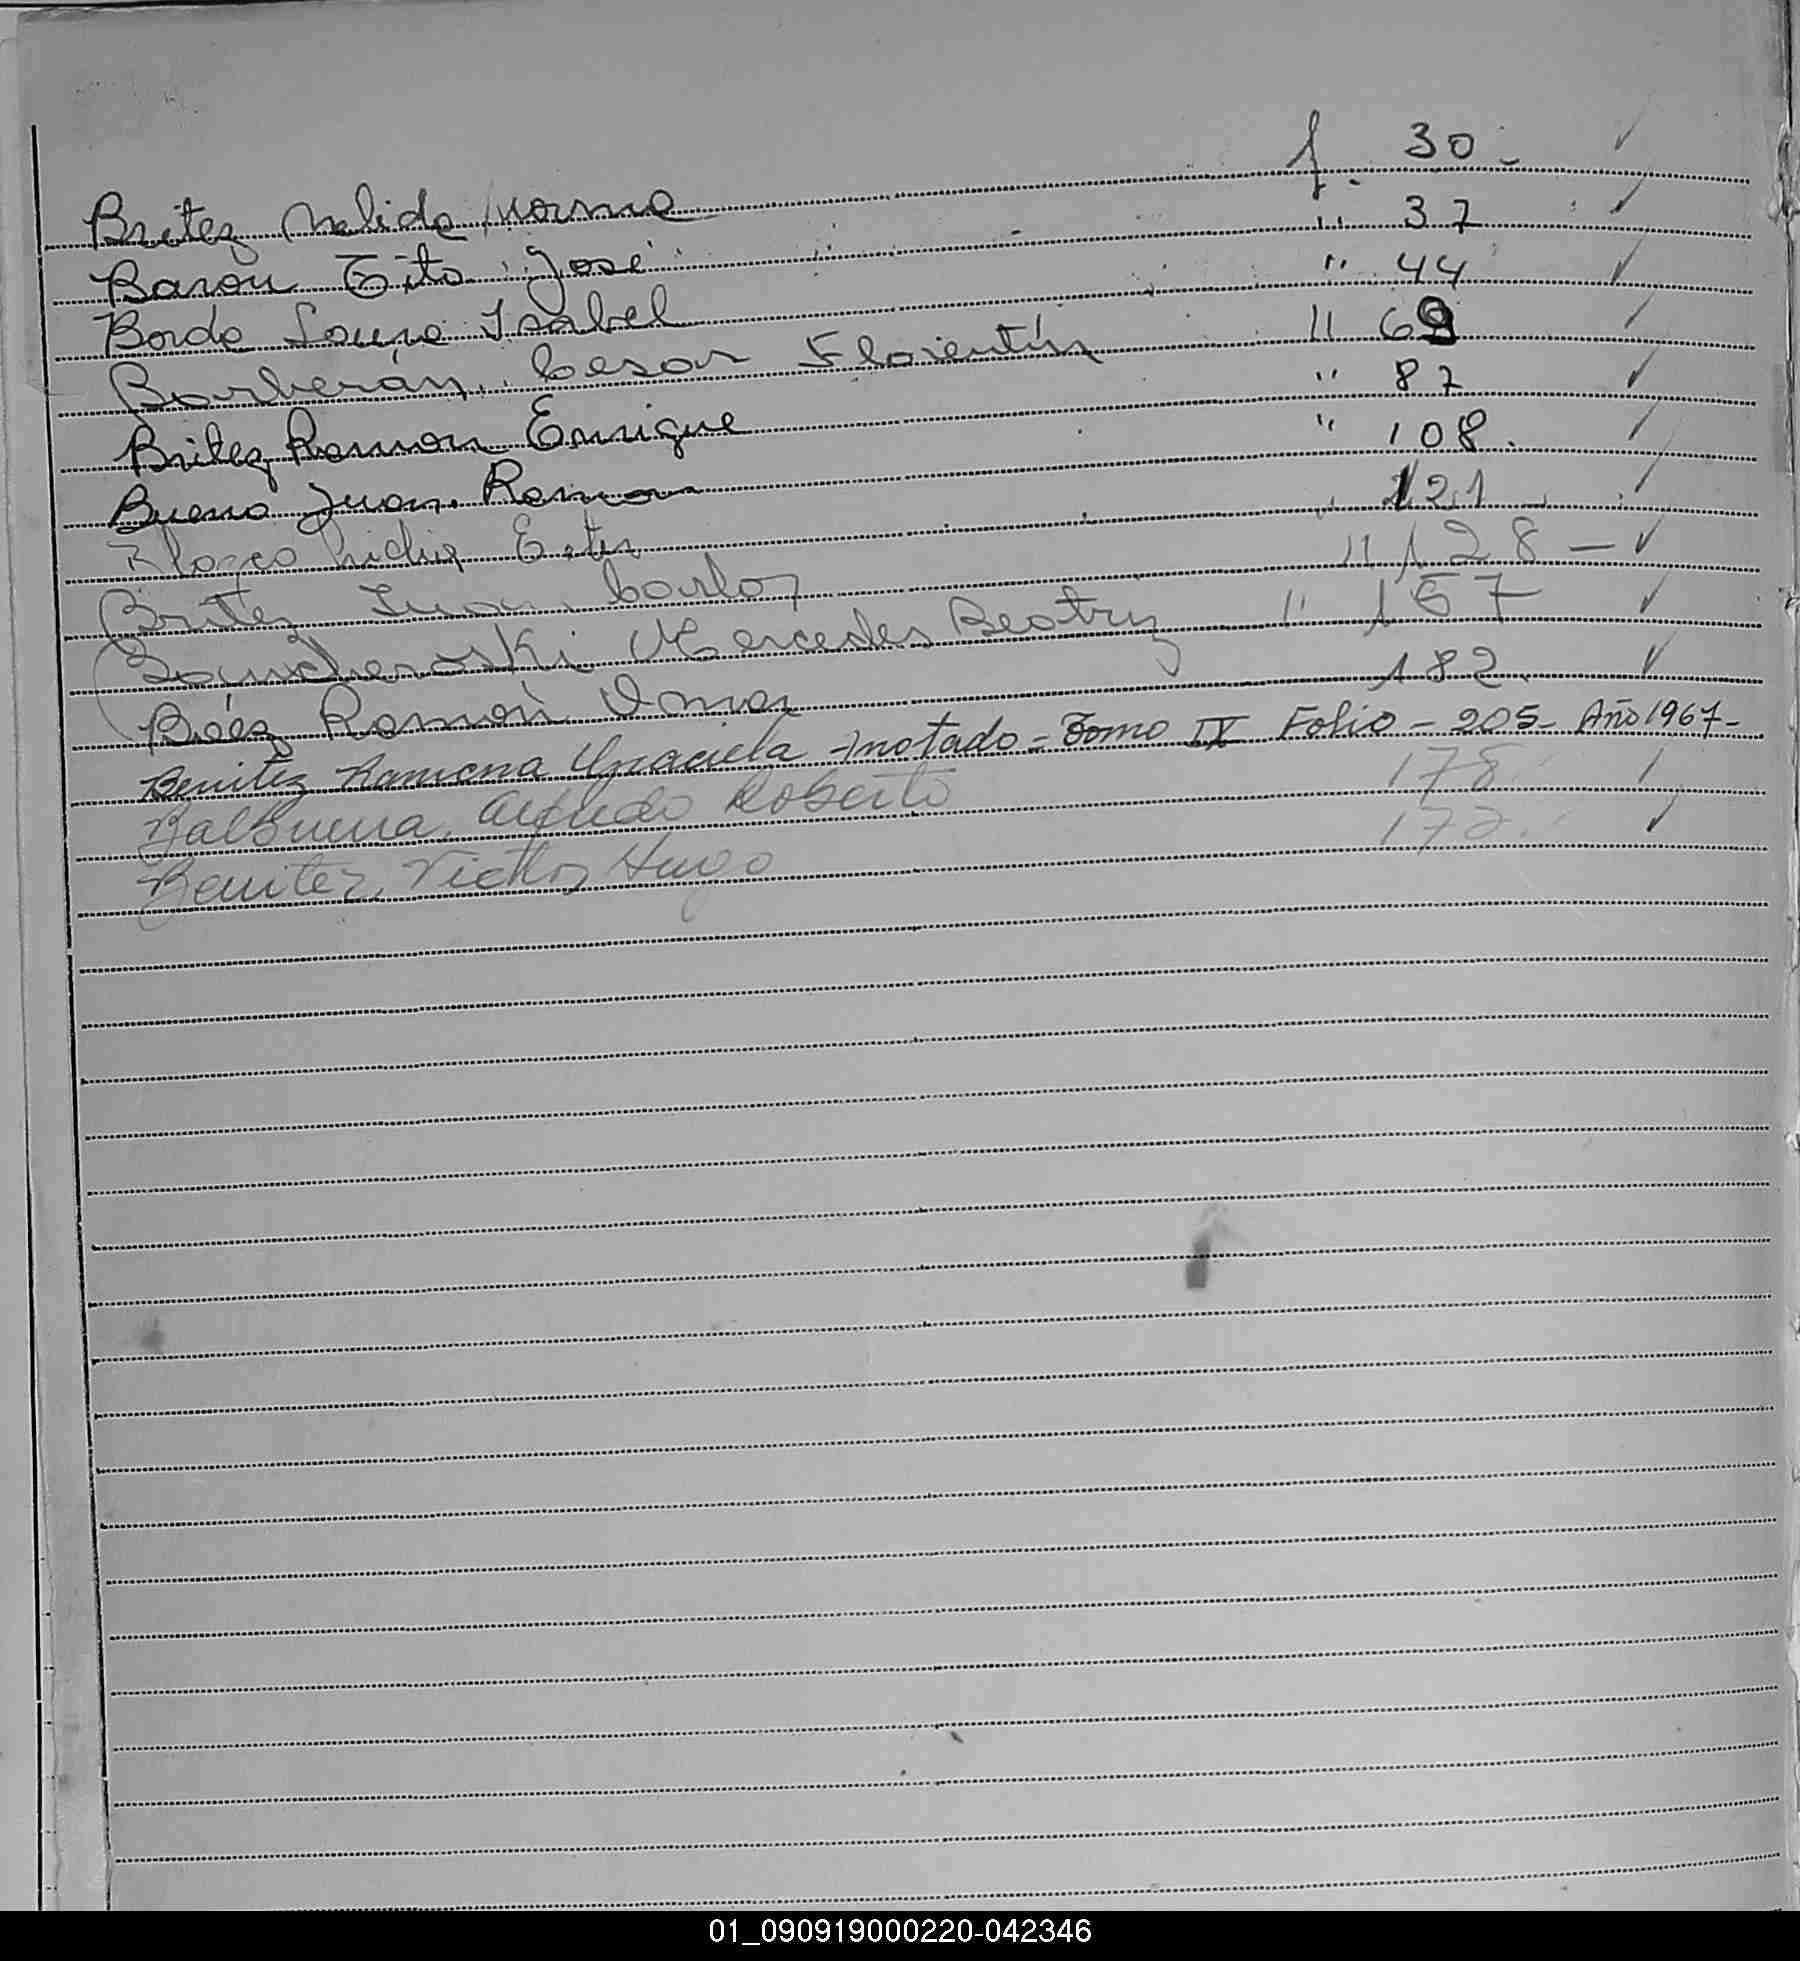 Britez Nelida Norma f. 30 -
Baron Tito José " 37
Borda Laura Isabel " 44
Barberán Cesar Florentín " 69
Britez Ramon Enrique " 87
Bueno Juan Ramon " 108
Ester " 121
Britez Juan Carlos " 128 -
Mercedes Beatriz " 157
Báez Ramón Omar 182
Benitez Ramona Graciela - Anotado - Tomo IV Folio - 205 - Año 1967 -
Balbuena, Alfredo Roberto 178
Benitez, Victor Hugo 172
01_090919000220-042346